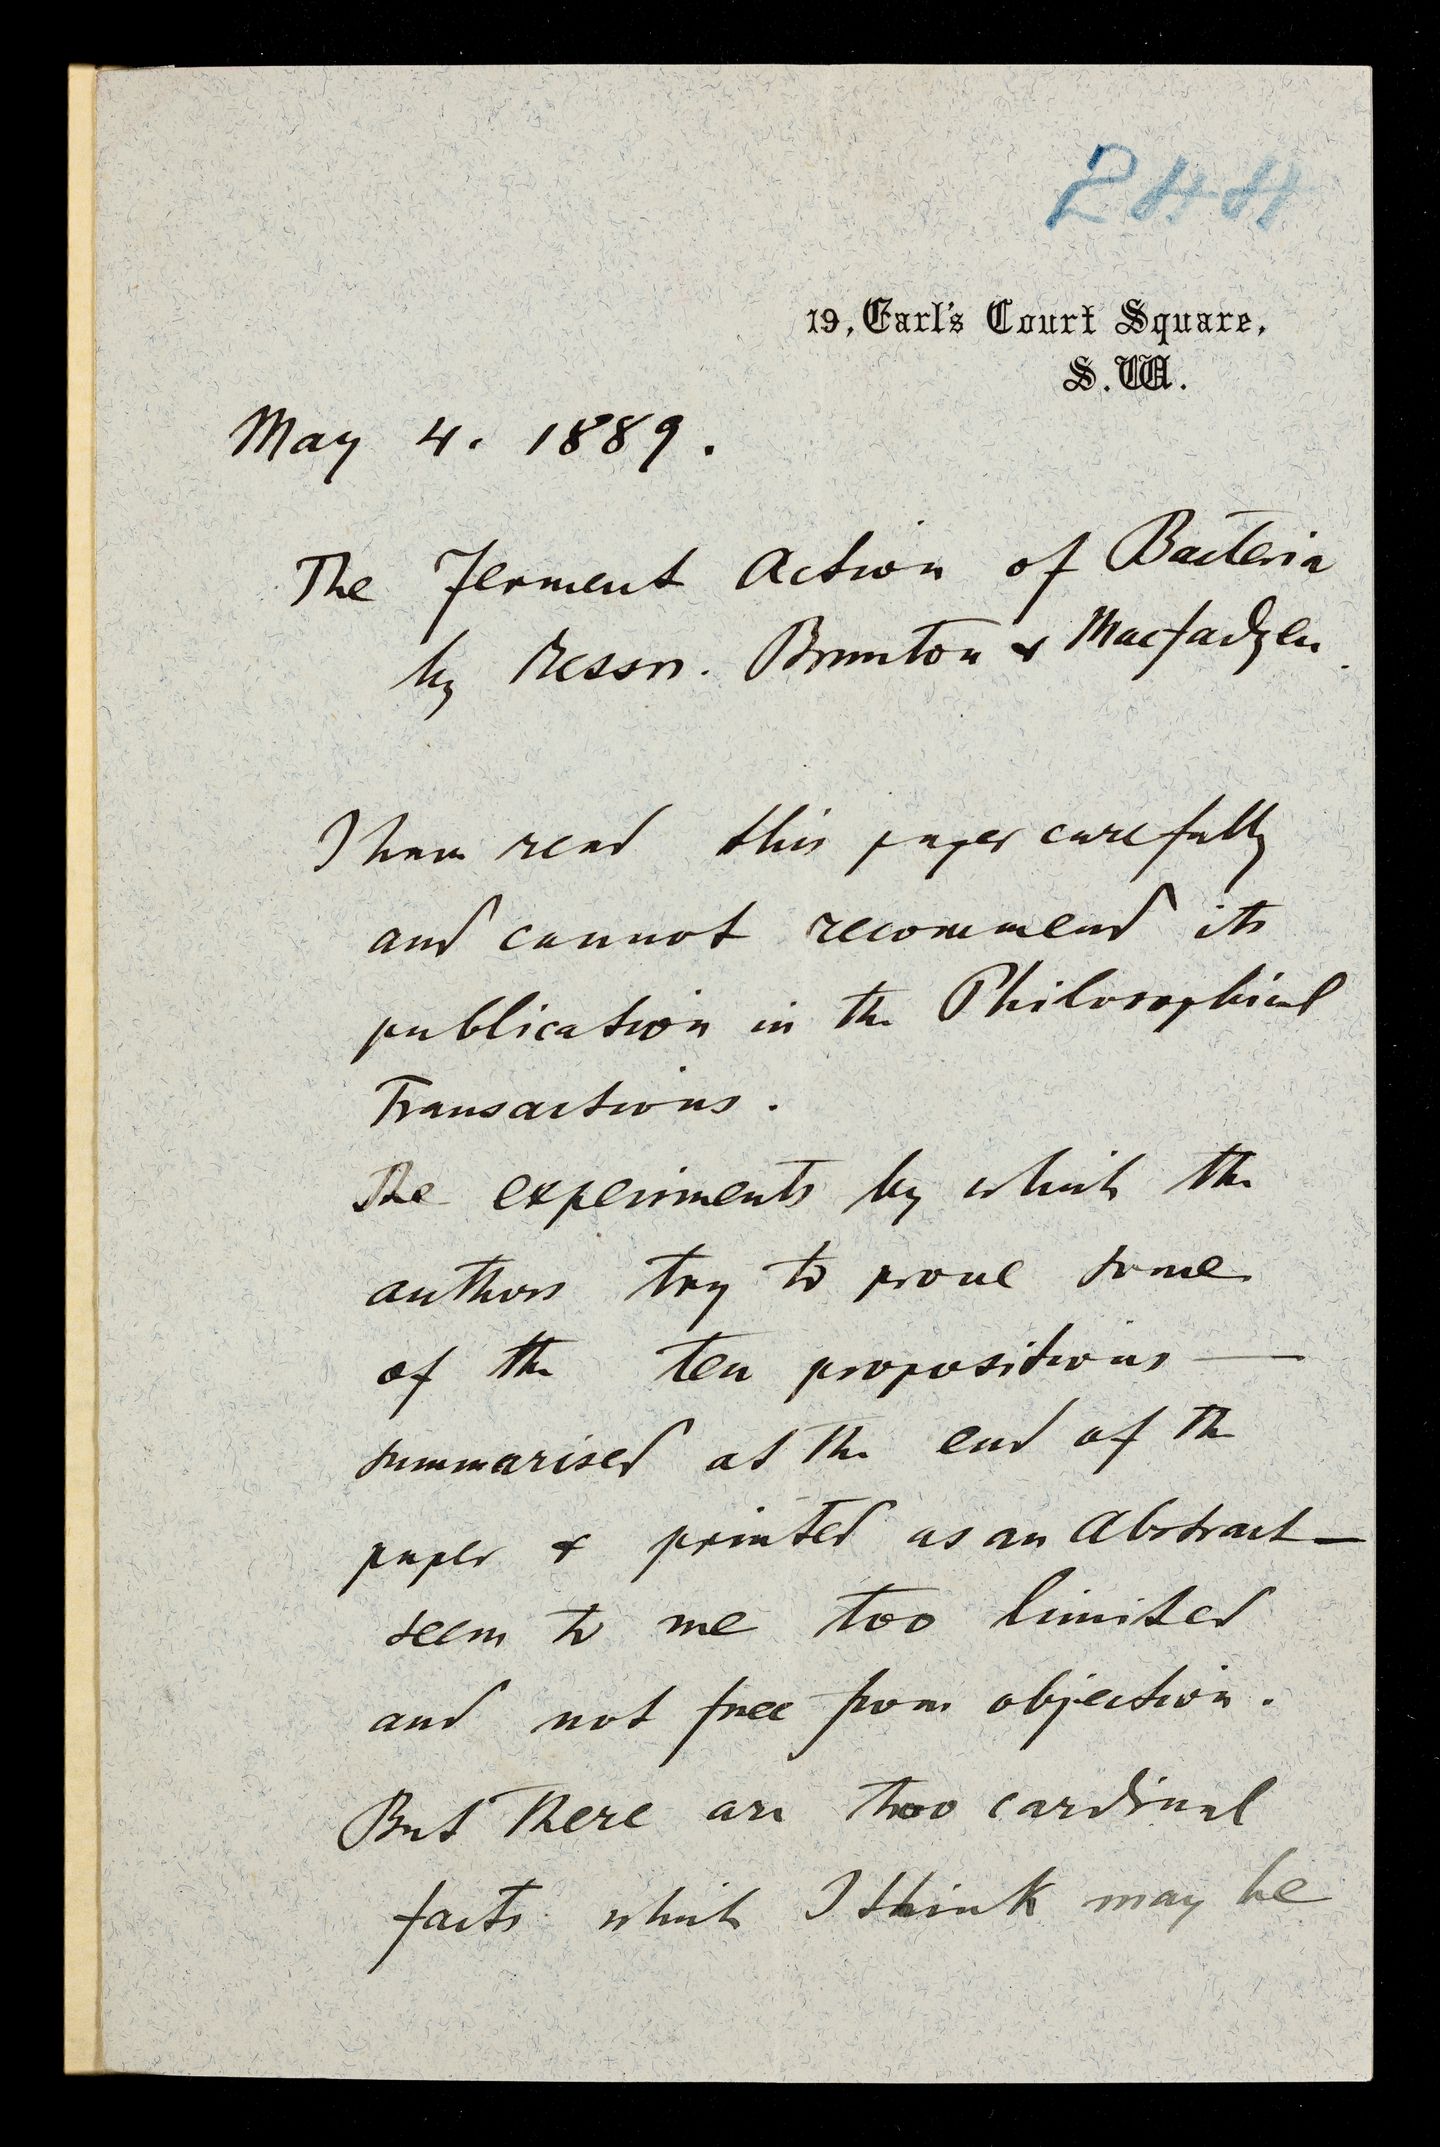 244
19, Earl's Court Square,
S.W.
May 4. 1889.
The Ferment Action of Bacteria
by Messrs. Brunton & Macfadyen.
I have read this paper carefully
and cannot recommend its
publication in the Philosophical
Transactions.
The experiments by which the
authors try to prove some
of the ten propositions —
summarised at the end of the
paper & printed as an Abstract —
seem to me too limited
and not free from objection.
But there are two cardinal
facts which I think may be